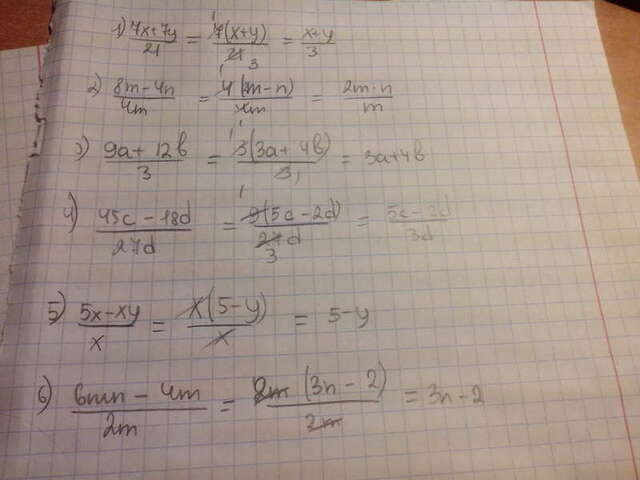 1) (7x+7y)/21 = 7(x+y)/21 3 = (x+y)/3
2) (8m-4n)/4m = 4(2m-n)/4m = (2m-n)/m
3) (9a+12b)/3 = 3(3a+4b)/3 = 3a+4b
4) (45c-18d)/27d = 9(5c-2d)/27d 3 = (5c-2d)/3d
5) (5x-xy)/x = x(5-y)/x = 5-y
6) (6mn-4m)/2m = 2m(3n-2)/2m = 3n-2